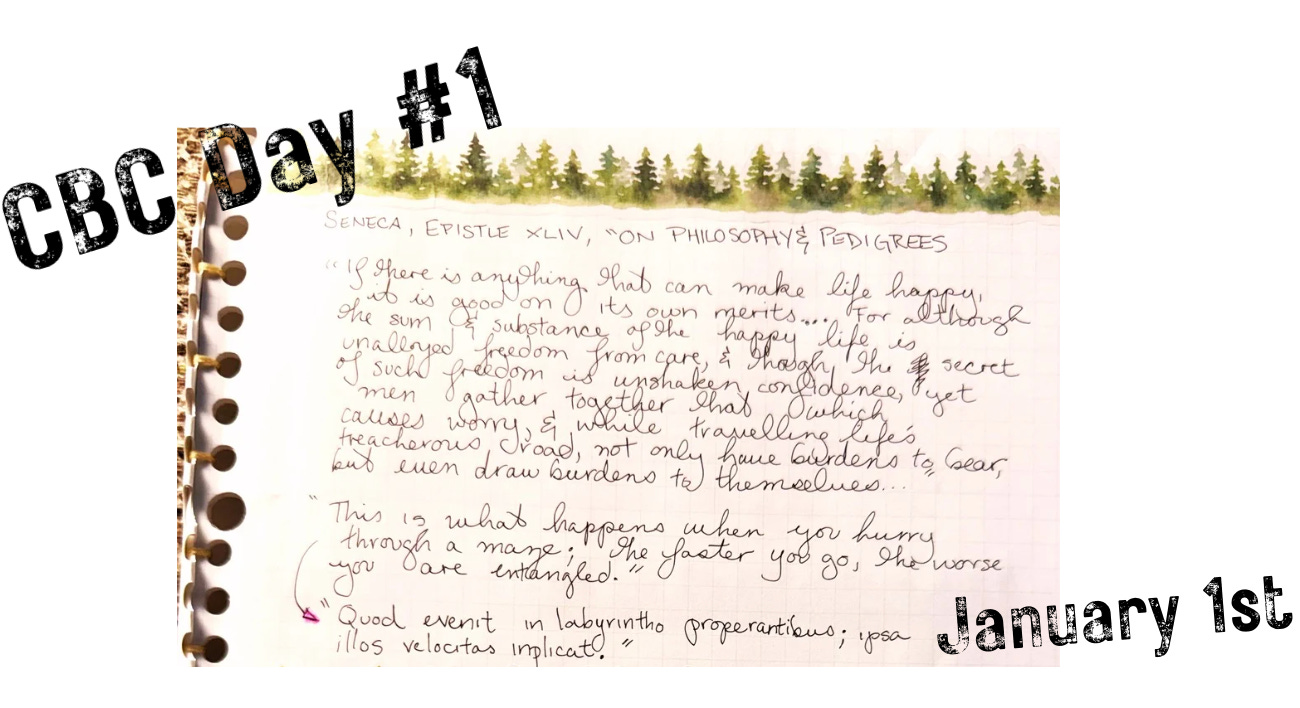 CBC Day #1
SENECA, EPISTLE XLIV, "ON PHILOSOPHY & PEDIGREES
"If there is anything that can make life happy,
it is good on its own merits.... For although
the sum & substance of the happy life is
unalloyed freedom from care, & though the secret
of such freedom is unshaken confidence, yet
men gather together that which
causes worry, & while travelling life's
treacherous road, not only have burdens to bear,
but even draw burdens to themselves..."
"This is what happens when you hurry
through a maze; the faster you go, the worse
you are entangled."
"Quod evenit in labyrintho properantibus; ipsa
illos velocitas inplicat."
January 1st